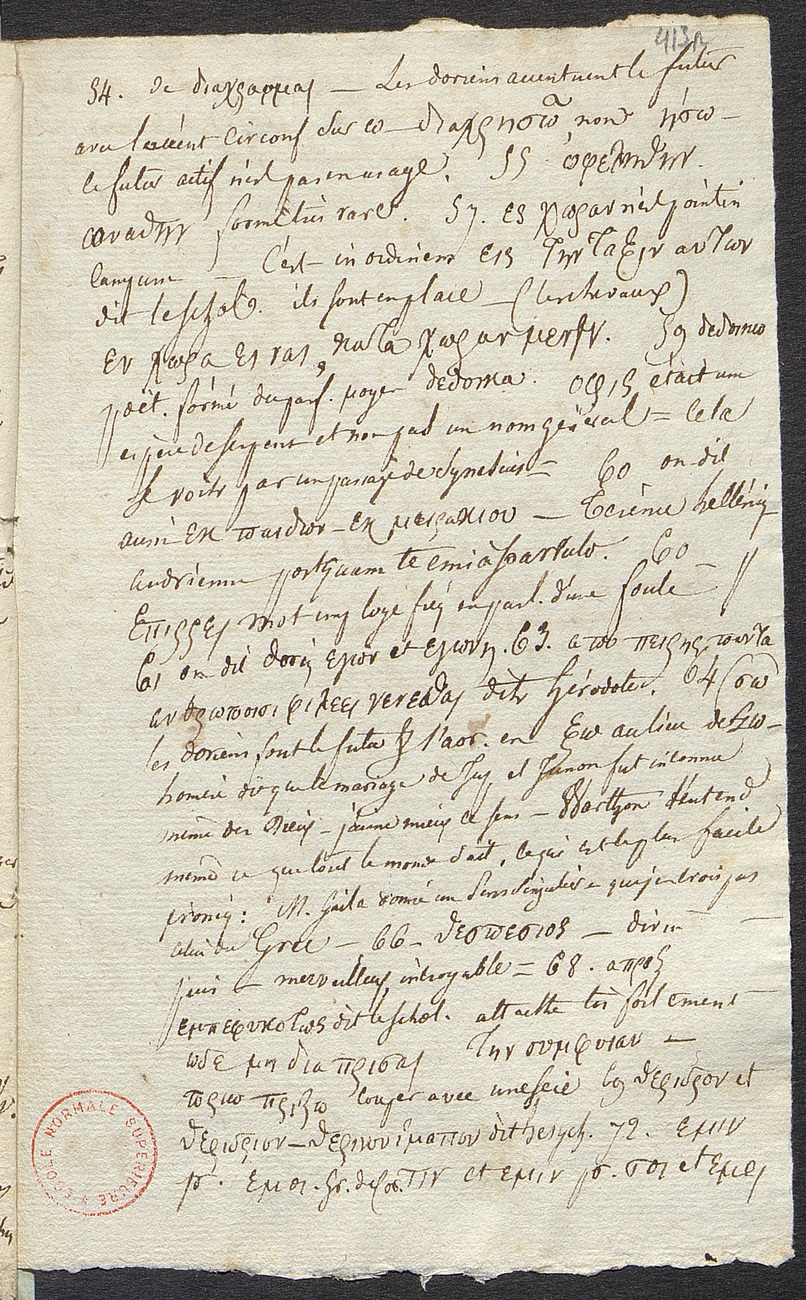 413 r
54. de διαχρησαι — Les doriens accentuent le futur
avec l'accent circonf sur ω — διαχρησῶ, non ήσω —
le futur actif n'est pas en usage. 55. ὀφελήθην.
ωναθην forme très rare. 57. ες χωραν n'est point in
c'est in ordinem εις την ταξιν αυτων
dit le schol. ils sont en place — (les chevaux)
εν χωρα ες ται, κατα χωραν μενην. 59 δεδοικω
poét. formé du parf. moyen δεδοικα. οφις était une
espèce de serpent et non pas un nom général = Cela
se voit par un passage de Synesius = 60 on dit
aussi εκ παιδων — εκ μειρακιου — Térence
andrienne postquam te emi à parvulo. 60
επιρρει mot employé fréq en parl. d'une foule — //
61 on dit εγων et εγωνη. 63. απο πειρης παντα
ανθρωποισι φιλεει γενεσθαι dit Hérodote. 64 (σω
les doriens font le futur & l'aor. en ξω au lieu de σω —
homère dit que le mariage de Jup et Junon fut inconnu
même des Dieux — j'aime mieux ce sens — Warthon l'entend
même ce que tout le monde sait, ce qui est le plus facile
M. Gail a donné un sens singulier que je ne crois pas
celui du Grec — 66 — θεσπεσιος — divin —
puis — merveilleux, incroyable = 68. απριξ
εμπεφυκοτως dit le schol. attaché très fortement
ωδε μη διαπρισαι την συμφυιαν —
πριω πριζω couper avec une scie 69 θεριστρον et
θεριστριον — θερινον ιματιον dit hesych. 72. εμιν
p. εμοι. τιν et εμιν p. σοι et εμοι
ECOLE NORMALE SUPERIEURE